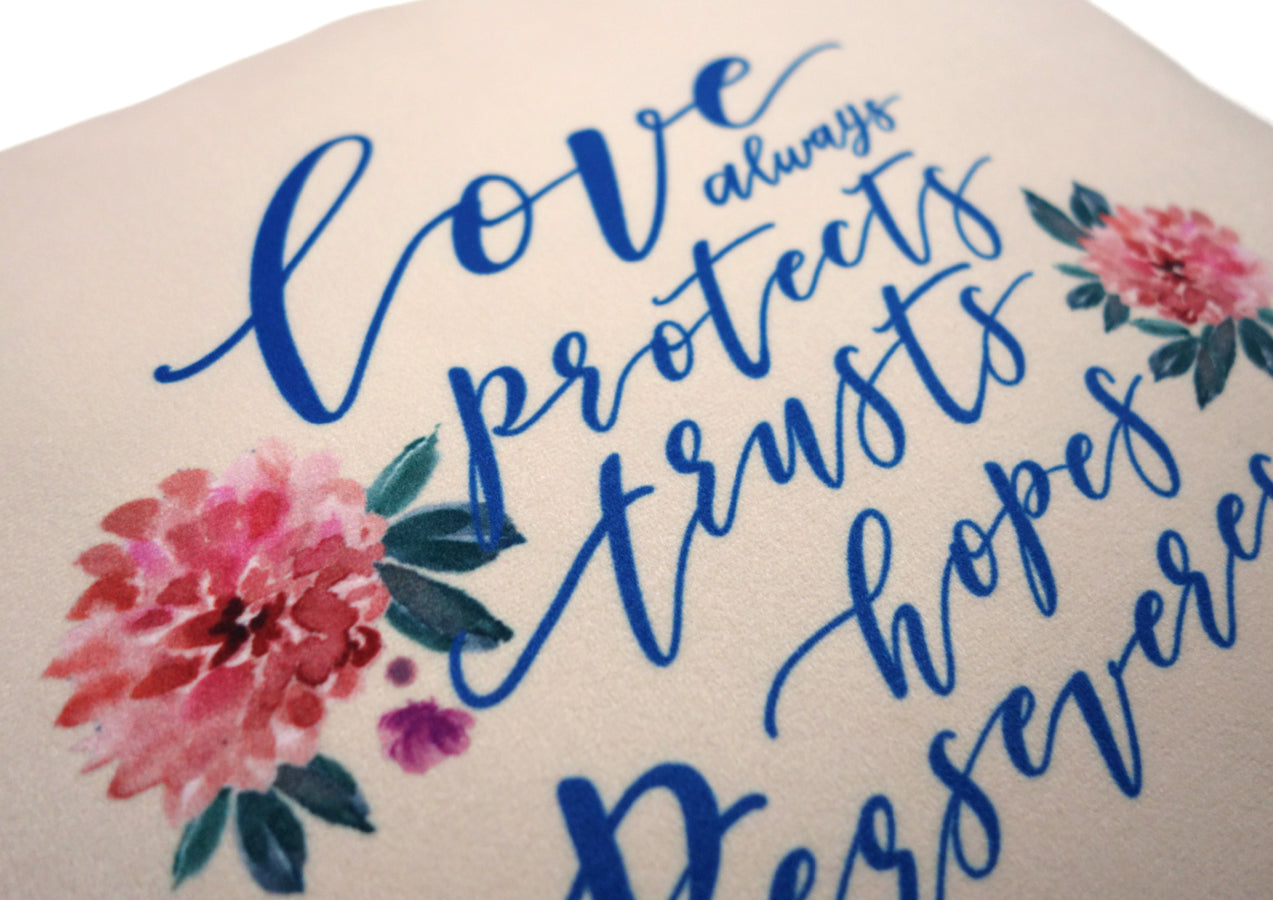 love
always
protects
trusts
hopes
Perseveres